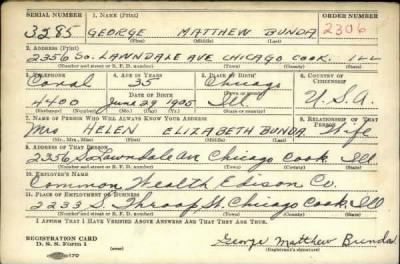 SERIAL NUMBER 1. NAME (Print) ORDER NUMBER
3285 GEORGE MATTHEW BUNDA 2306
(First) (Middle) (Last)
2. ADDRESS (Print)
2356 SO. LAWNDALE AVE CHICAGO COOK. ILL
(Number and street or R. F. D. number) (Town) (County) (State)
3. TELEPHONE 4. AGE IN YEARS 5. PLACE OF BIRTH 6. COUNTRY OF CITIZENSHIP
Canal 35 Chicago
DATE OF BIRTH (Town or county)
4400 June 29 1905 Ill. U.S.A.
(Exchange) (Number) (Mo.) (Day) (Yr.) (State or country)
7. NAME OF PERSON WHO WILL ALWAYS KNOW YOUR ADDRESS 8. RELATIONSHIP OF THAT PERSON
Mrs HELEN ELIZABETH BUNDA Wife
(Mr., Mrs., Miss) (First) (Middle) (Last)
9. ADDRESS OF THAT PERSON
2356 S. Lawndale Av Chicago Cook Ill
(Number and street or R. F. D. number) (Town) (County) (State)
10. EMPLOYER'S NAME
Common Wealth Edison Co.
11. PLACE OF EMPLOYMENT OR BUSINESS
2233 S. Throop St. Chicago Cook Ill
(Number and street or R. F. D. number) (Town) (County) (State)
I AFFIRM THAT I HAVE VERIFIED ABOVE ANSWERS AND THAT THEY ARE TRUE.
REGISTRATION CARD
D. S. S. Form 1 George Matthew Bunda
(Registrant's signature)